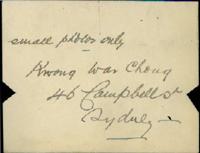 small photos only
Kwong War Chong
46 Campbell St
Sydney